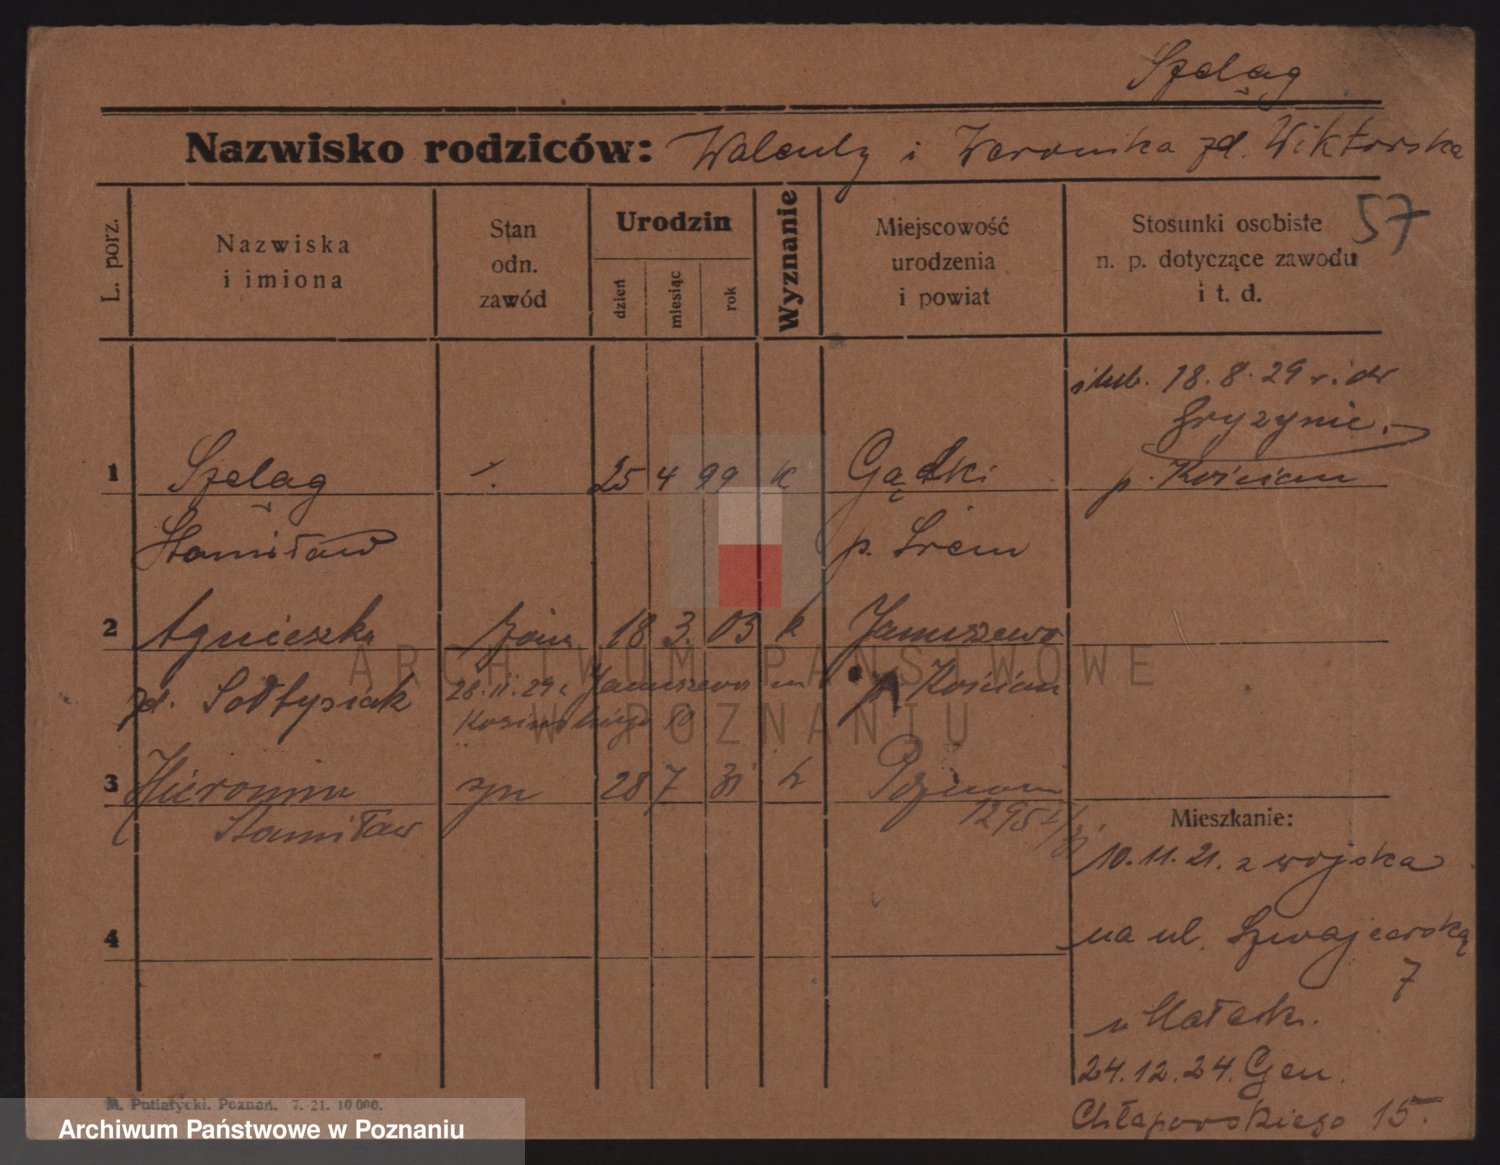 Szeląg
Nazwisko rodziców: Walenty i Weronika zd. Wiktorska
57
L. porz.
Nazwiska
i imiona
Stan
odn.
zawód
Urodzin
dzień
miesiąc
rok
Wyznanie
Miejscowość
urodzenia
i powiat
Stosunki osobiste
n. p. dotyczące zawodu
i t. d.
18.8.29 r.
Gryzynie.
p. Kościan
1 Szeląg 25 4 99 k Gądki
Stanisław p. Śrem
2 Agnieszka żona 18 3 03 k Januszewo
zd. Sołtysiak 28.11.29 Januszewo p. Kościan
Kosińskiego 10
3 Hieronim syn 28 7 31 k Poznań
Stanisław 1295
4
Mieszkanie:
10.11.21. z wojska
na ul. Szwajcarską
7
u Małech.
24.12.24. Gen.
Chłapowskiego 15.
M. Putiatycki. Poznań. 7. 21. 10 000.
ARCHIWUM PAŃSTWOWE
W POZNANIU
Archiwum Państwowe w Poznaniu